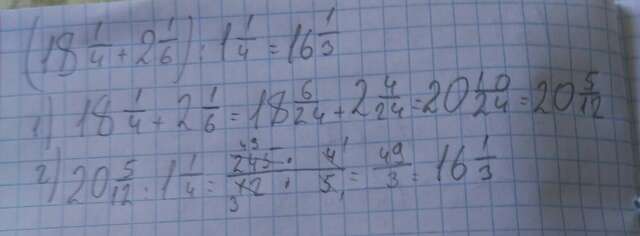 (18 1/4 + 2 1/6) : 1 1/4 = 16 1/3
1) 18 1/4 + 2 1/6 = 18 6/24 + 2 4/24 = 20 10/24 = 20 5/12
2) 20 5/12 : 1 1/4 = 49 245 · 4 1 / 3 12 · 5 1 = 49/3 = 16 1/3